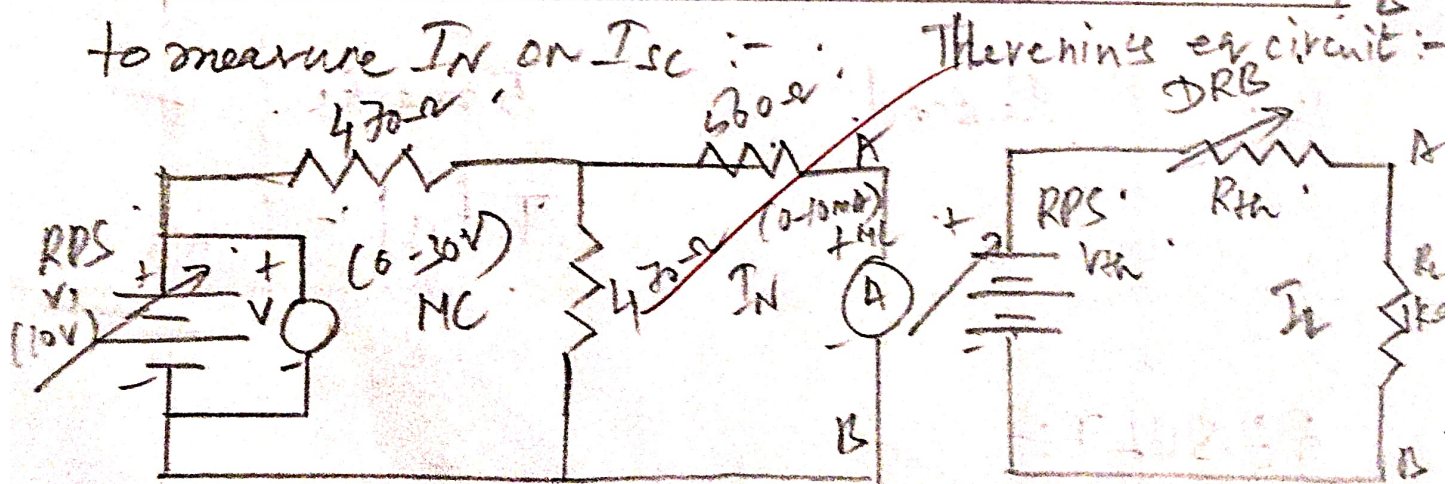 to measure IN or ISC :-
Thevenin's eq circuit :-
470Ω
560Ω
A
DRB
A
RPS
V1
(10V)
+
-
+
V
-
(0-30V)
MC
470Ω
(0-10mA)
MC
+
IN
A
-
B
+
RPS
Vth
-
Rth
IL
RL
B